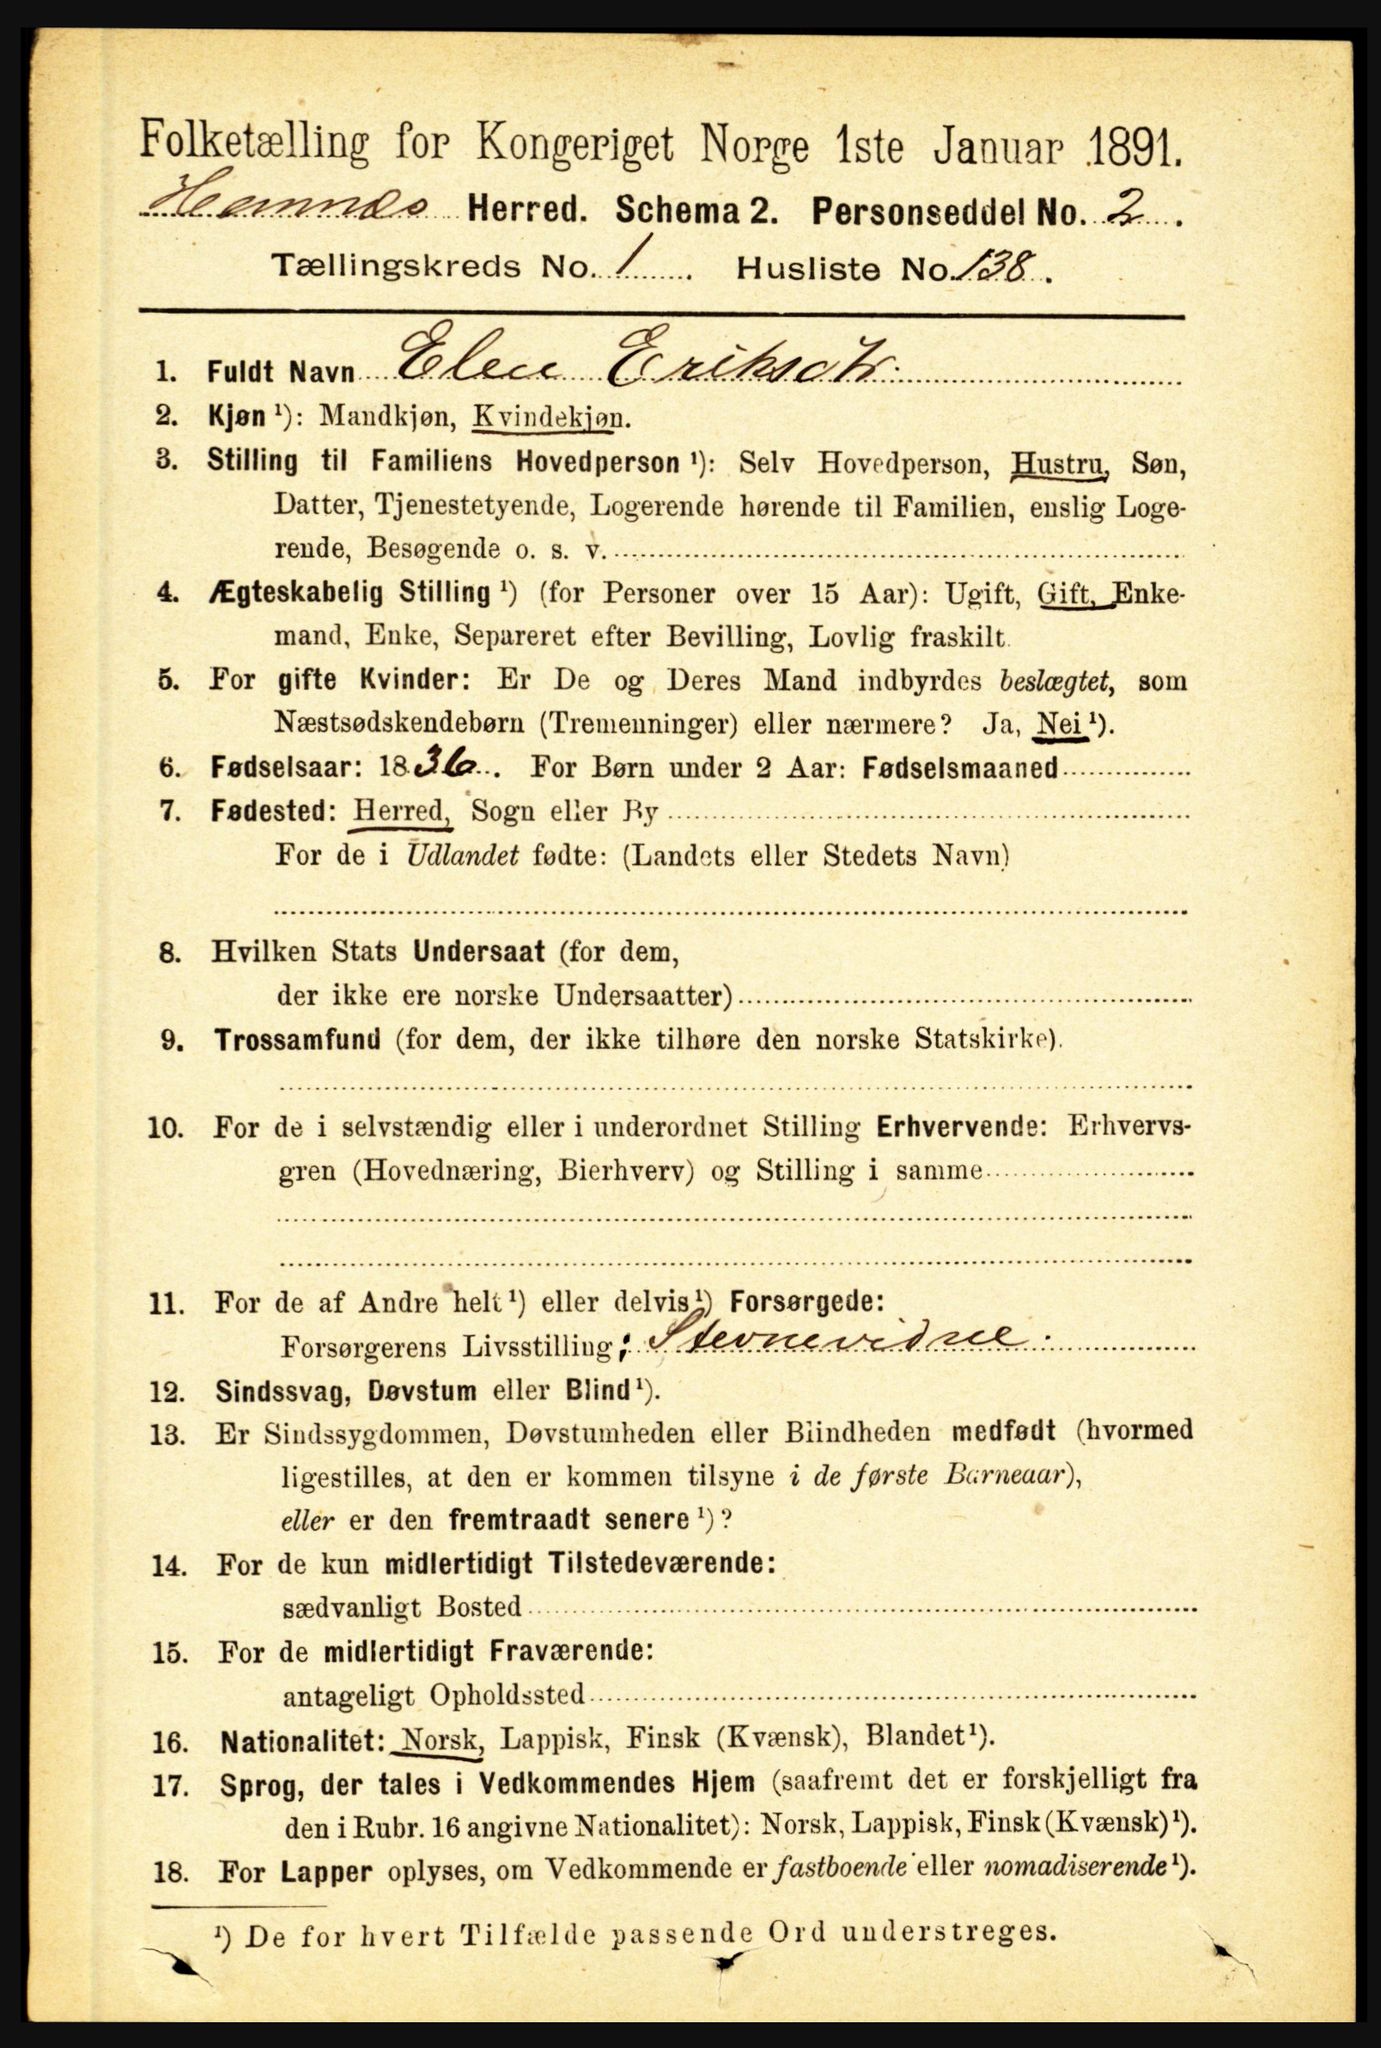 Folketælling for Kongeriget Norge 1ste Januar 1891.
Hemnæs Herred. Schema 2. Personseddel No. 2.
Tællingskreds No. 1. Husliste No. 138.
1. Fuldt Navn Elen Eriksdtr.
2. Kjøn ¹): Mandkjøn, Kvindekjøn.
3. Stilling til Familiens Hovedperson ¹): Selv Hovedperson, Hustru, Søn,
Datter, Tjenestetyende, Logerende hørende til Familien, enslig Loge-
rende, Besøgende o. s. v.
4. Ægteskabelig Stilling ¹) (for Personer over 15 Aar): Ugift, Gift, Enke-
mand, Enke, Separeret efter Bevilling, Lovlig fraskilt.
5. For gifte Kvinder: Er De og Deres Mand indbyrdes beslægtet, som
Næstsødskendebørn (Tremenninger) eller nærmere? Ja, Nei ¹).
6. Fødselsaar: 1836. For Børn under 2 Aar: Fødselsmaaned
7. Fødested: Herred, Sogn eller By
For de i Udlandet fødte: (Landets eller Stedets Navn)
8. Hvilken Stats Undersaat (for dem,
der ikke ere norske Undersaatter)
9. Trossamfund (for dem, der ikke tilhøre den norske Statskirke).
10. For de i selvstændig eller i underordnet Stilling Erhvervende: Erhvervs-
gren (Hovednæring, Bierhverv) og Stilling i samme
11. For de af Andre helt ¹) eller delvis ¹) Forsørgede:
Forsørgerens Livsstilling: Stevnevidne.
12. Sindssvag, Døvstum eller Blind ¹).
13. Er Sindssygdommen, Døvstumheden eller Blindheden medfødt (hvormed
ligestilles, at den er kommen tilsyne i de første Barneaar),
eller er den fremtraadt senere ¹)?
14. For de kun midlertidigt Tilstedeværende:
sædvanligt Bosted
15. For de midlertidigt Fraværende:
antageligt Opholdssted
16. Nationalitet: Norsk, Lappisk, Finsk (Kvænsk), Blandet ¹).
17. Sprog, der tales i Vedkommendes Hjem (saafremt det er forskjelligt fra
den i Rubr. 16 angivne Nationalitet): Norsk, Lappisk, Finsk (Kvænsk) ¹).
18. For Lapper oplyses, om Vedkommende er fastboende eller nomadiserende ¹).
¹) De for hvert Tilfælde passende Ord understreges.